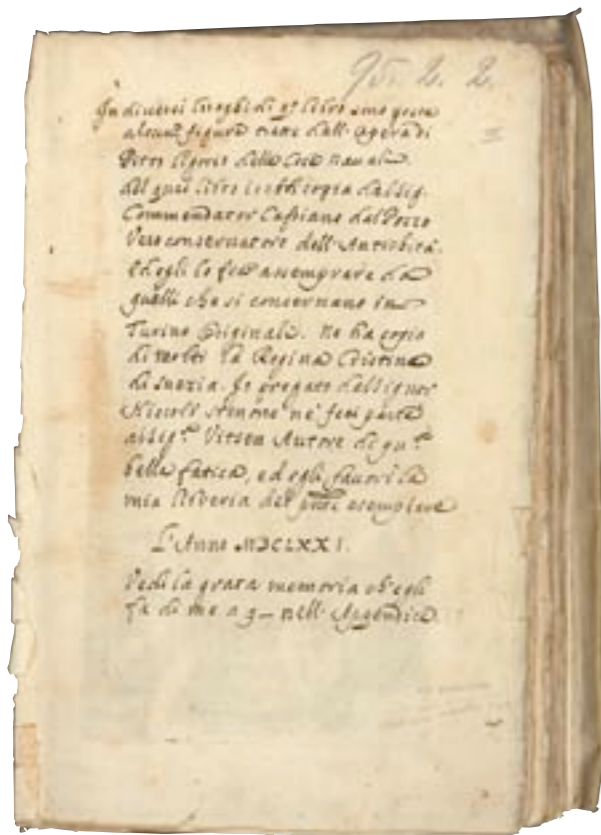 95. 2. 2.
In diversi luoghi di q.to libro sono poste
alcune figure tratte dall' opera di
Pirro Ligorio delle Cose navali.
del qual libro io ebbi copia dal Sig.
Commendator Cassiano dal Pozzo
Vero conservatore dell' Antichità.
Ed egli lo fece assemprare da
quelli che si conservano in
Turino Originali. Ne ha copia
di molti la Regina Cristina
di Suezia. Io pregato dal Signor
Niccolò Stenone ne feci parte
al Sig.r Vitsen Autore di qu.ta
bella fatica, ed egli favorì la
mia libreria del pnte esemplare
L'Anno MDCLXXI.
Vedi la grata memoria ch' egli
fa di me a g— nell' Appendice.